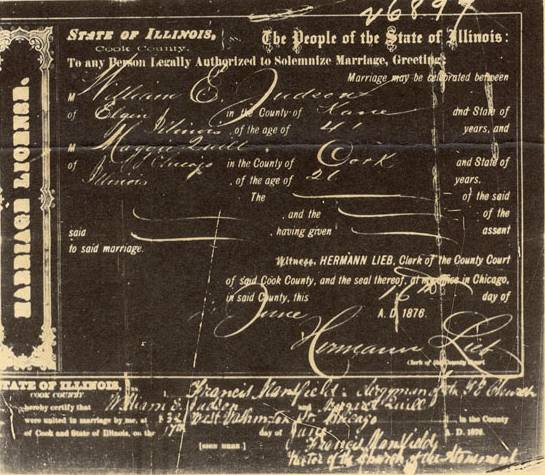 26899
MARRIAGE LICENSE.
STATE OF ILLINOIS,
Cook County.
The People of the State of Illinois:
To any Person Legally Authorized to Solemnize Marriage, Greeting:
Marriage may be celebrated between
M William E. Judson
of Elgin in the County of Kane and State of
Illinois, of the age of 41 years, and
M Maggie Quill
of Chicago in the County of Cook and State of
Illinois, of the age of 26 years.
The of the said
, and the of the
said , having given assent
to said marriage.
Witness, HERMANN LIEB, Clerk of the County Court
of said Cook County, and the seal thereof, at my office in Chicago,
in said County, this day of
June A. D. 1876.
Hermann Lieb
Clerk of the County Court
STATE OF ILLINOIS,
COOK COUNTY
I, Francis Mansfield a clergyman of the P E Church
hereby certify that William E. Judson and Margaret Quill
were united in marriage by me, at 532 West Washington St Chicago in the County
of Cook and State of Illinois, on the 17th day of June A. D. 1876.
[SIGN HERE.] Francis Mansfield
Rector of the Church of the Atonement